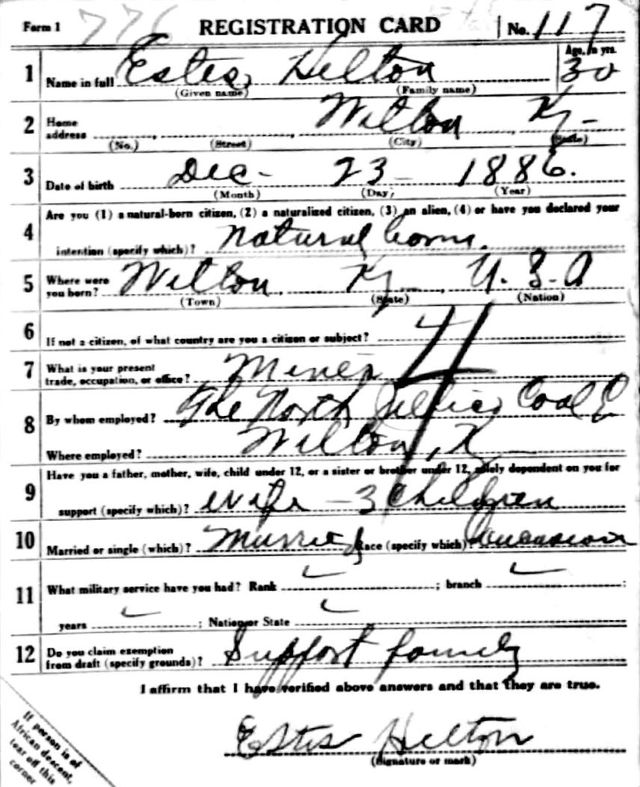 Form 1 776 REGISTRATION CARD No. 117
1 Name in full Estes Helton Age, in yrs. 30
(Given name) (Family name)
2 Home address Wilton, Ky-
(No.) (Street) (City) (State)
3 Date of birth Dec- 23- 1886.
(Month) (Day) (Year)
4 Are you (1) a natural-born citizen, (2) a naturalized citizen, (3) an alien, (4) or have you declared your
intention (specify which)? Natural born.
5 Where were you born? Wilton Ky U.S.A
(Town) (State) (Nation)
6 If not a citizen, of what country are you a citizen or subject?
4
7 What is your present trade, occupation, or office? Miner
8 By whom employed? The North Jellico Coal C
Where employed? Wilton, Ky
9 Have you a father, mother, wife, child under 12, or a sister or brother under 12, solely dependent on you for
support (specify which)? wife - 3 children
10 Married or single (which)? Married Race (specify which)? Caucasian
11 What military service have you had? Rank ; branch ;
years ; Nation or State
12 Do you claim exemption from draft (specify grounds)? Support family
I affirm that I have verified above answers and that they are true.
Estis Helton
(Signature or mark)
If person is of
African descent,
tear off this
corner